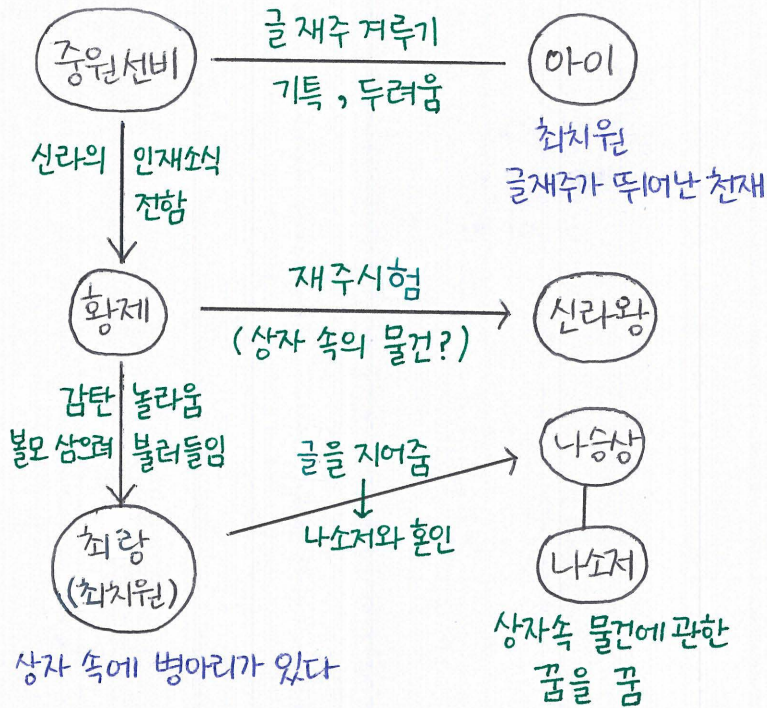 중원선비
글 재주 겨루기
기특, 두려움
아이
최치원
글재주가 뛰어난 천재
신라의 인재소식
전함
황제
재주시험
(상자 속의 물건?)
신라왕
감탄 놀라움
볼모 삼으려 불러들임
글을 지어줌
나소저와 혼인
나승상
최랑
(최치원)
나소저
상자 속에 병아리가 있다
상자속 물건에 관한
꿈을 꿈